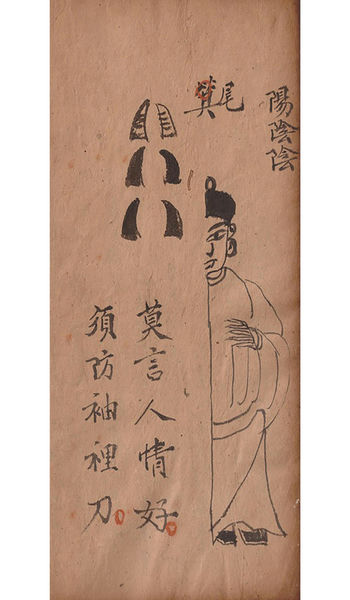 陽陰陰
尾
莫言人情好
須防袖裡刀